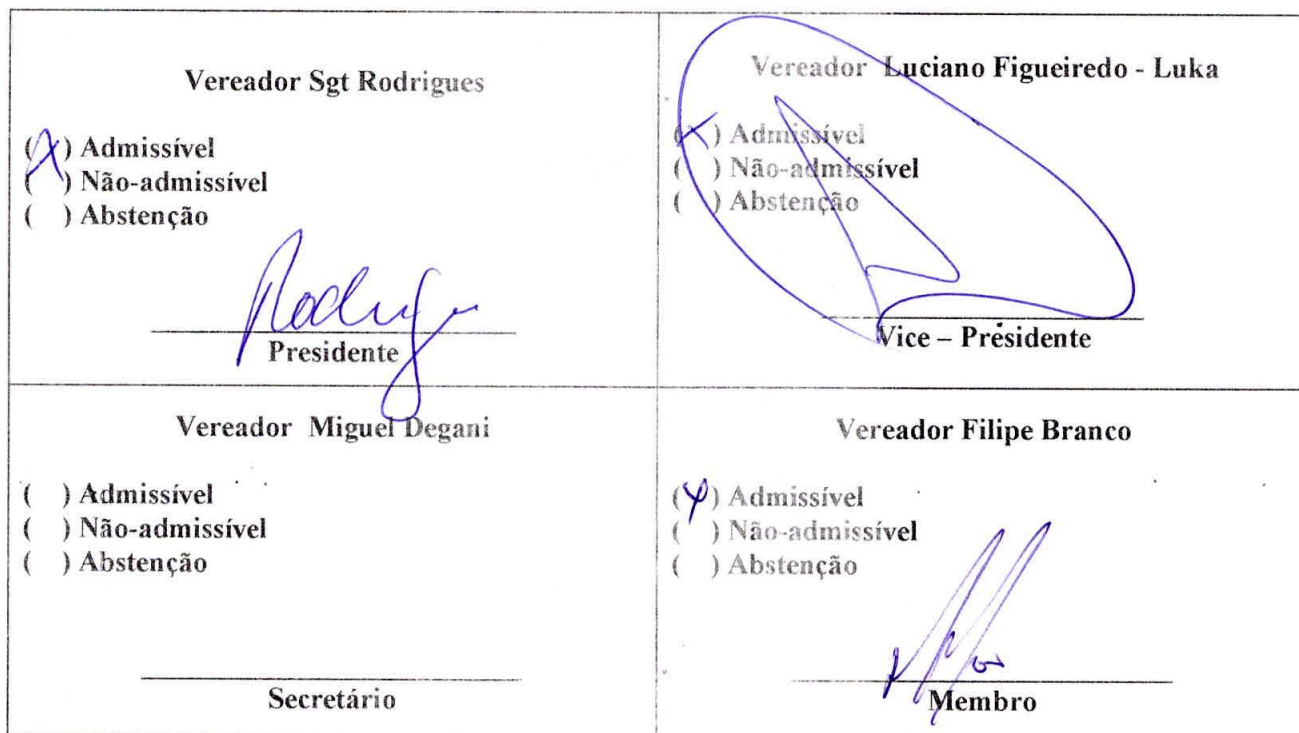 Vereador Sgt Rodrigues
(X) Admissível
( ) Não-admissível
( ) Abstenção
Rodrigues
Presidente
Vereador Luciano Figueiredo - Luka
(X) Admissível
( ) Não-admissível
( ) Abstenção
Vice – Presidente
Vereador Miguel Degani
( ) Admissível
( ) Não-admissível
( ) Abstenção
Secretário
Vereador Filipe Branco
(X) Admissível
( ) Não-admissível
( ) Abstenção
Membro